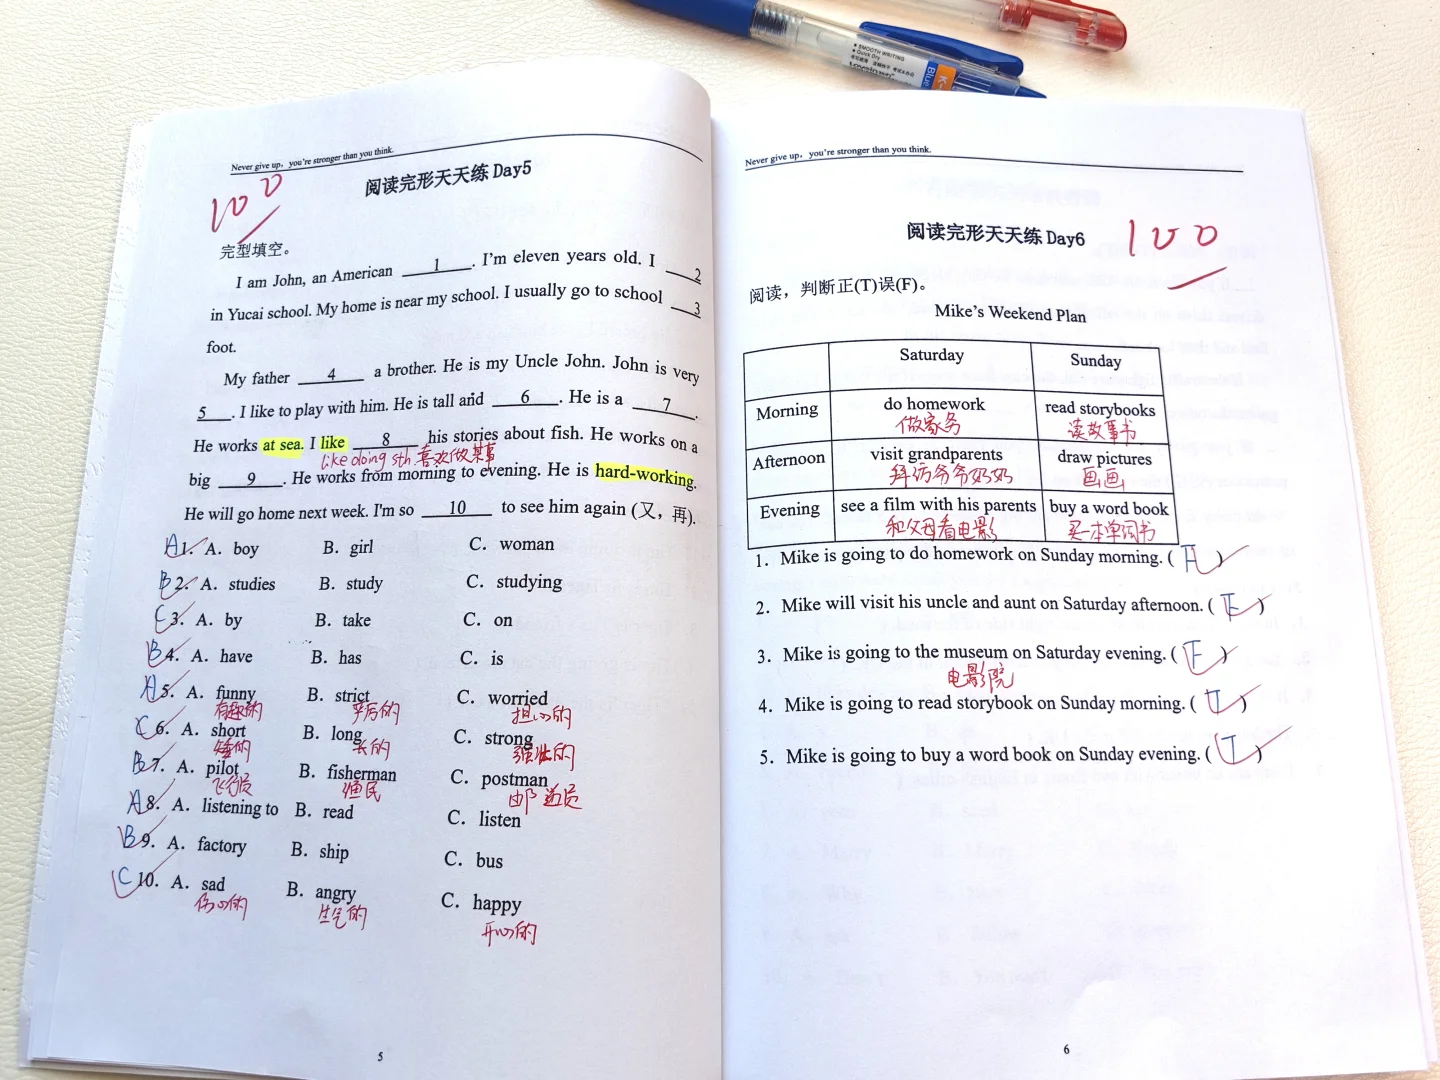 SMOOTH WRITING
Quick Dry
Blue
K-
Never give up, you're stronger than you think.
阅读完形天天练 Day5
100
完型填空。
I am John, an American 1 . I'm eleven years old. I 2
in Yucai school. My home is near my school. I usually go to school 3
foot.
My father 4 a brother. He is my Uncle John. John is very
5 . I like to play with him. He is tall and 6 . He is a 7 .
He works at sea. I like 8 his stories about fish. He works on a
like doing sth 喜欢做某事
big 9 . He works from morning to evening. He is hard-working.
He will go home next week. I'm so 10 to see him again (又，再).
A 1. A. boy B. girl C. woman
B 2. A. studies B. study C. studying
C 3. A. by B. take C. on
B 4. A. have B. has C. is
A 5. A. funny B. strict C. worried
有趣的 严厉的 担心的
C 6. A. short B. long C. strong
矮的 长的 强壮的
B 7. A. pilot B. fisherman C. postman
飞行员 渔民 邮递员
A 8. A. listening to B. read C. listen
B 9. A. factory B. ship C. bus
C 10. A. sad B. angry C. happy
伤心的 生气的 开心的
5
Never give up, you're stronger than you think.
阅读完形天天练 Day6
100
阅读，判断正(T)误(F)。
Mike's Weekend Plan
Saturday Sunday
Morning do homework read storybooks
做家务 读故事书
Afternoon visit grandparents draw pictures
拜访爷爷奶奶 画画
Evening see a film with his parents buy a word book
和父母看电影 买一本单词书
1. Mike is going to do homework on Sunday morning. ( F )
2. Mike will visit his uncle and aunt on Saturday afternoon. ( F )
3. Mike is going to the museum on Saturday evening. ( F )
电影院
4. Mike is going to read storybook on Sunday morning. ( T )
5. Mike is going to buy a word book on Sunday evening. ( T )
6